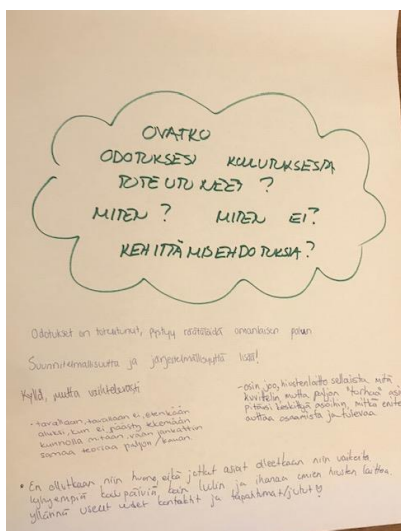 OVATKO
ODOTUKSESI KOULUTUKSESTA
TOTEUTUNEET ?
MITEN ? MITEN EI?
KEHITTÄMISEHDOTUKSIA?
Odotukset on toteutunut, pystyy räätälöidä omanlaisen polun
Suunnitelmallisuutta ja järjestelmällisyyttä lisää!
Kyllä, mutta vaihtelevasti
- tavallaan, tavallaan ei, etenkään
aluksi, kun ei päästy tekemään
kunnolla mitään vaan jankattiin
samaa teoriaa paljon / kauan
- osin joo, hiustenlaitto sellaista mitä
kuvittelin, mutta paljon "turhaa"
pitäisi keskittyä asioihin, mitkä
auttaa osaamista ja tulevaa.
• En ollutkaan niin huono, eikä jotkut asiat olleetkaan niin vaikeita
lyhyempiä koulupäiviä, kuin luulin ja ihanaa omien hiusten laittoa.
yllännä useet uudet kontaktit ja tapahtumat/jutut